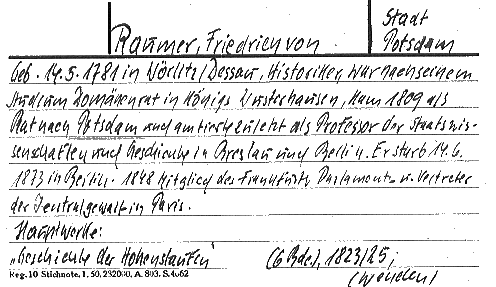 Raumer, Friedrich von
Stadt
Potsdam
Geb. 14.5.1781 in Wörlitz/Dessau, Historiker, war nach seinem
Studium Domänenrat in Königs Wusterhausen, kam 1809 als
Rat nach Potsdam und amtierte zuletzt als Professor der Staatswis-
senschaften und Geschichte in Breslau und Berlin. Er starb 14.6.
1873 in Berlin. 1848 Mitglied des Frankfurter Parlaments u. Vertreter
der Zentralgewalt in Paris.
Hauptwerke:
"Geschichte der Hohenstaufen" (6 Bde), 1823/25,
Reg. 10 Stichnote. 1. 50. A. 803. S.
(wenden)